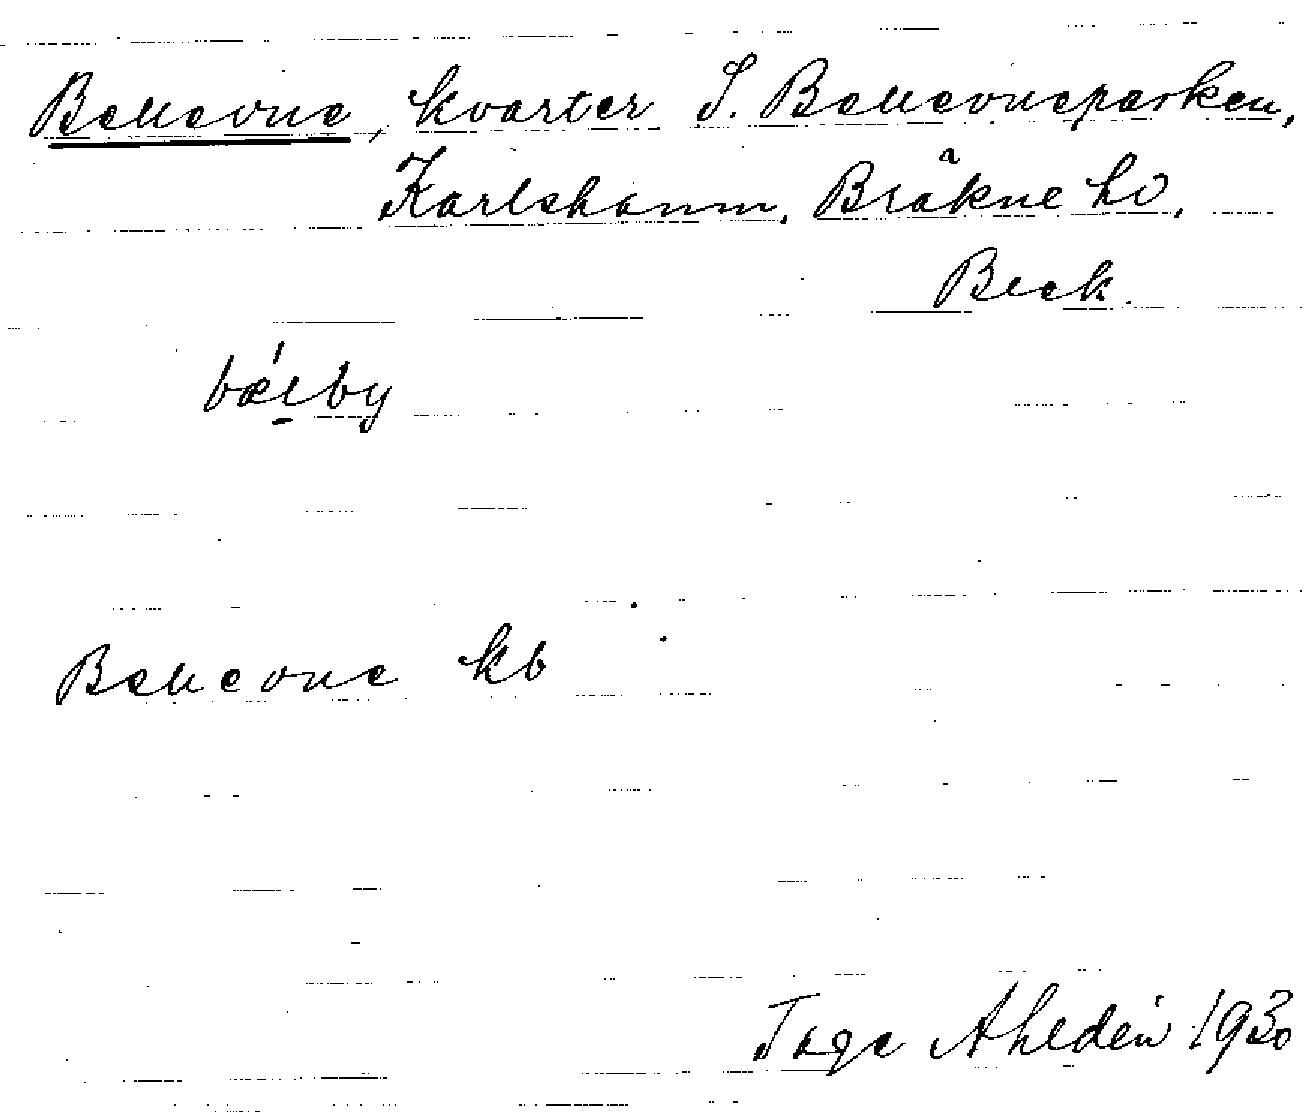 Bellevue, kvarter S. Bellevueparken,
Karlshamn, Bräkne hd,
Beck.
bælby
Bellevue kb
Tage Ahldén 1930